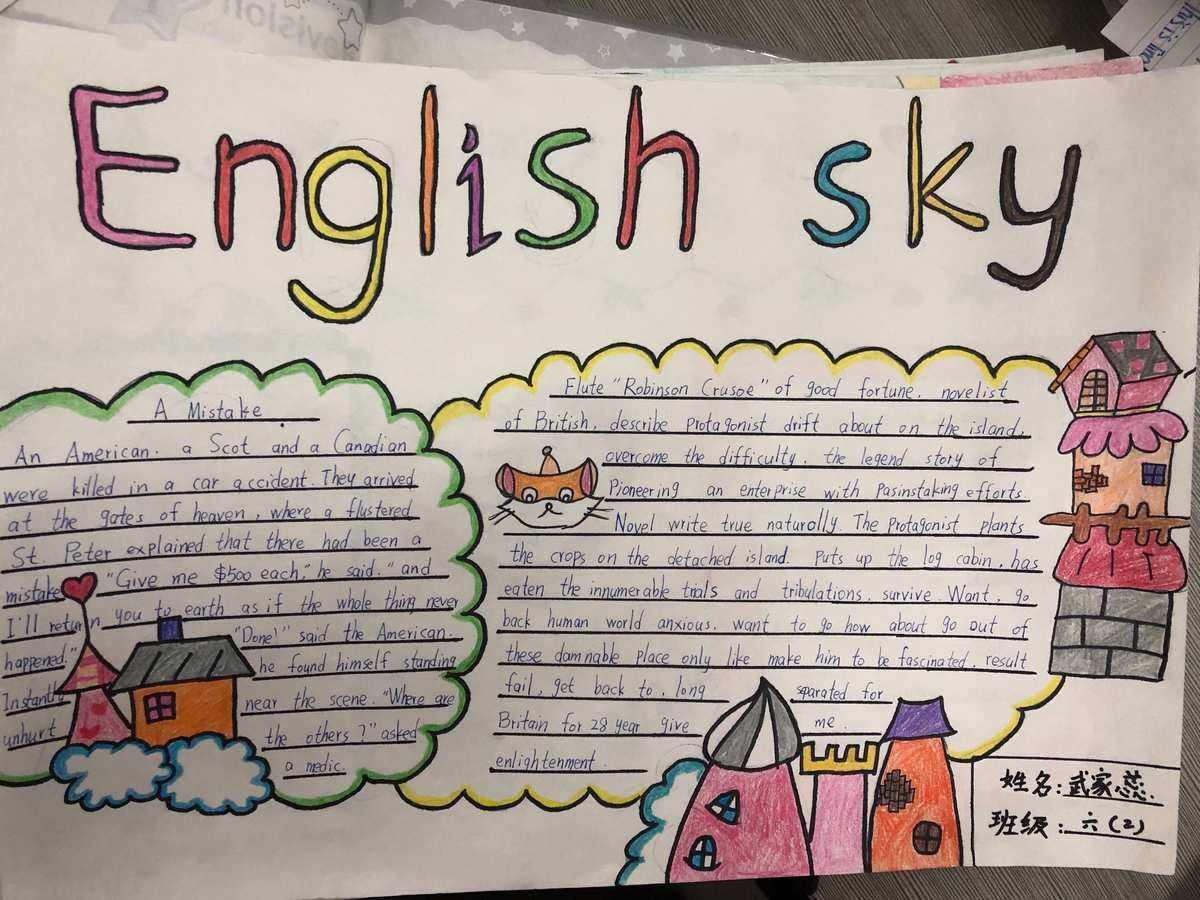 evision
This is fine
English sky
A Mistake
An American. a Scot and a Canadian
were killed in a car accident. They arrived
at the gates of heaven, where a flustered
St. Peter explained that there had been a
mistake "Give me $500 each," he said. "and
I'll return you to earth as if the whole thing never
happened." "Done!" said the American.
Instantly he found himself standing
unhurt near the scene. "Where are
the others?" asked
a medic.
Flute "Robinson Crusoe" of good fortune. novelist
of British, describe protagonist drift about on the island,
overcome the difficulty, the legend story of
Pioneering an enterprise with Pasinstaking efforts
Novel write true naturolly. The Protagonist plants
the crops on the detached island. Puts up the log cabin, has
eaten the innumerable trials and tribulations, survive. Want, go
back human world anxious, want to go how about go out of
these damnable place only like make him to be fascinated, result
fail, get back to, long separated for
Britain for 28 year give me.
enlightenment.
姓名:武家蕊.
班级:六(2)